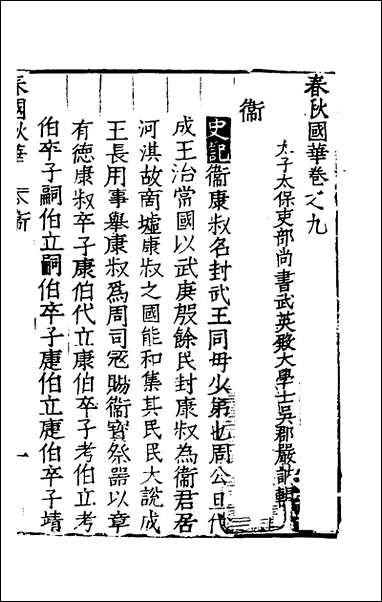 春秋國華卷之九
太子太保吏部尚書武英殿大學士吳郡嚴訥輯
衞
史記衞康叔名封武王同母少弟也周公旦代
成王治當國以武庚殷餘民封康叔為衞君居
河淇故商墟康叔之國能和集其民民大說成
王長用事舉康叔爲周司冦賜衞寶祭器以章
有德康叔卒子康伯代立康伯卒子考伯立考
伯卒子嗣伯立嗣伯卒子疌伯立疌伯卒子靖
春秋國華 衞
一